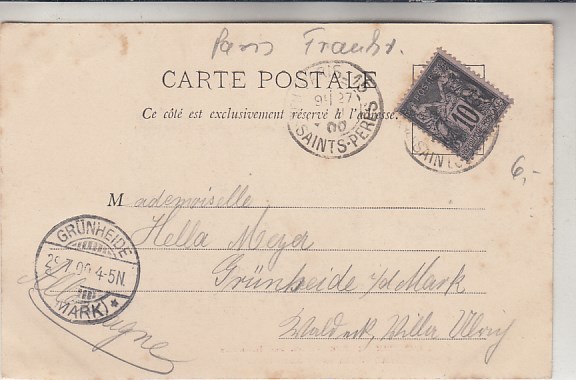 Paris Frankr.
CARTE POSTALE
Ce côté est exclusivement réservé à l'adresse.
PARIS 15
9E/27
00
SAINTS-PÈRES
10
SAINTS
6,-
Mademoiselle
Hella Meyer
Grünheide i/d Mark
Waldeck, Villa Ulrich
Allemagne
GRÜNHEIDE
00.4-5N.
(MARK)